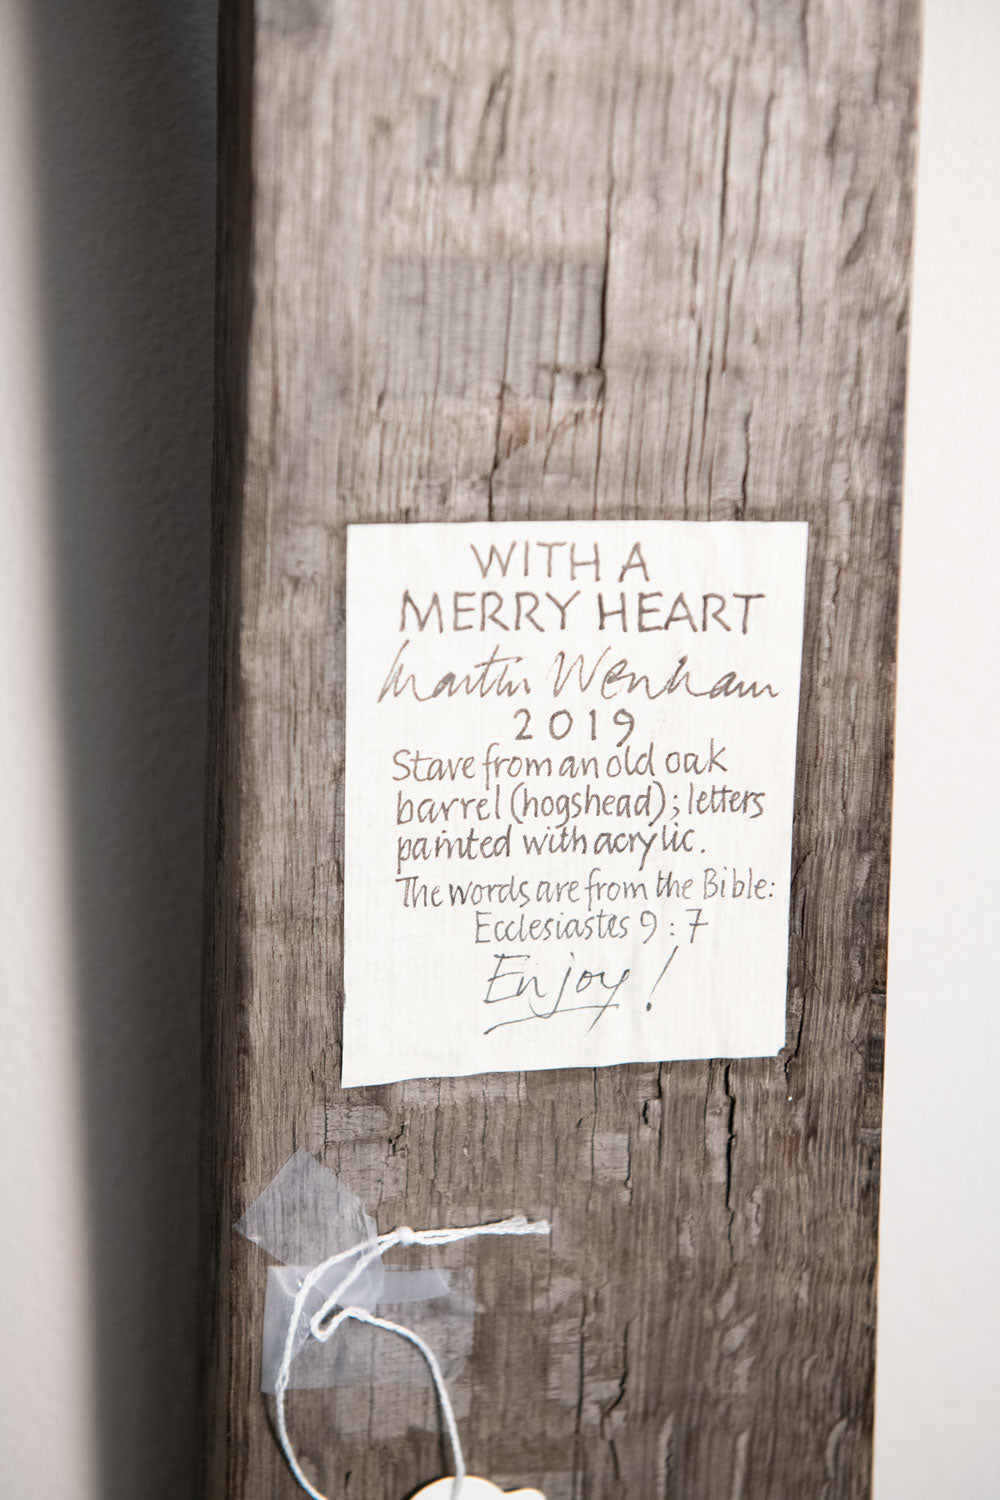 WITH A
MERRY HEART
Martin Wenham
2019
Stave from an old oak
barrel (hogshead); letters
painted with acrylic.
The words are from the Bible:
Ecclesiastes 9:7
Enjoy!